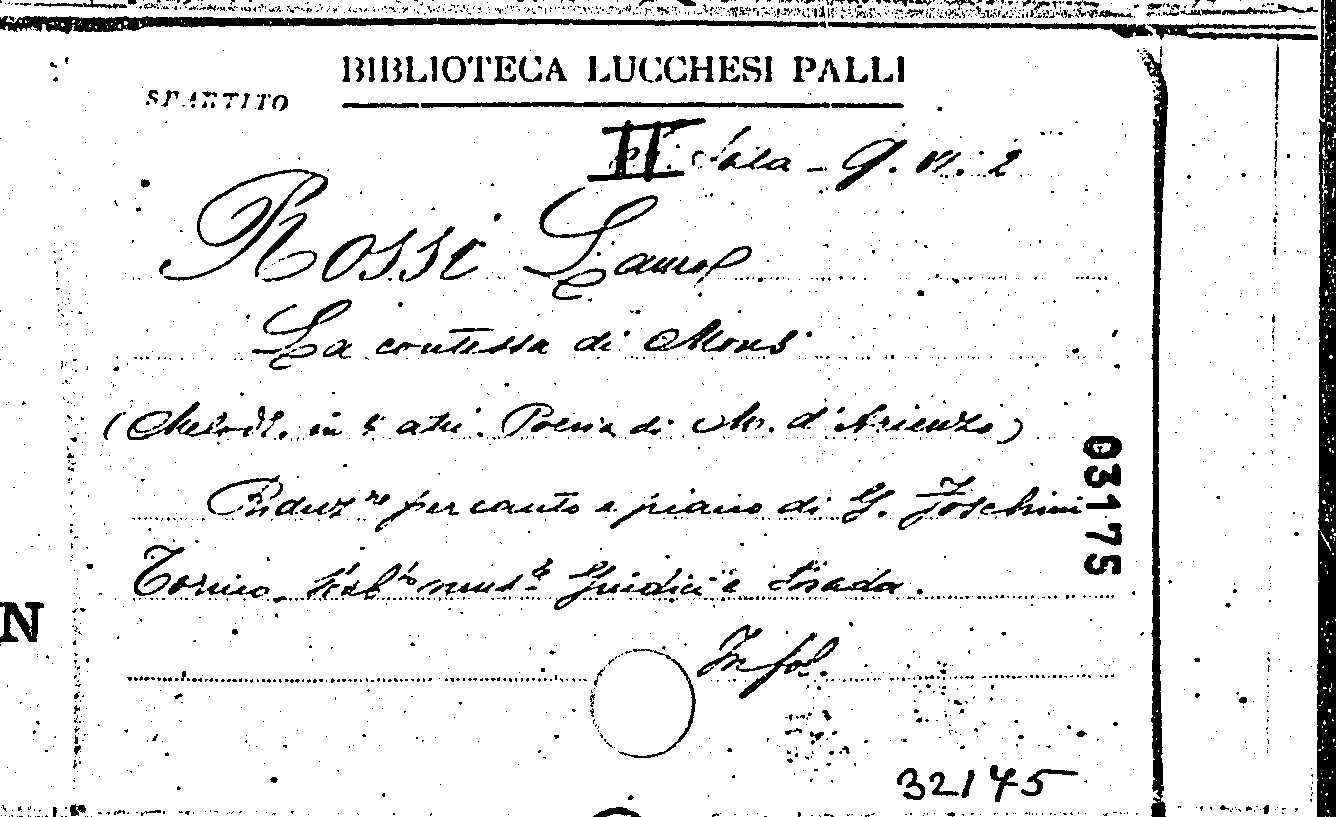 BIBLIOTECA LUCCHESI PALLI
SPARTITO
II Sala - 9. VI. 2
Rossi Lauro
La contessa di Mons
(Melodr. in 4 atti. Poesia di M. d'Arienzo)
Riduz.ne per canto e piano di G. Foschini
Torino, Stab.to mus.le Giudici e Strada.
In fol.
03175
N
32145